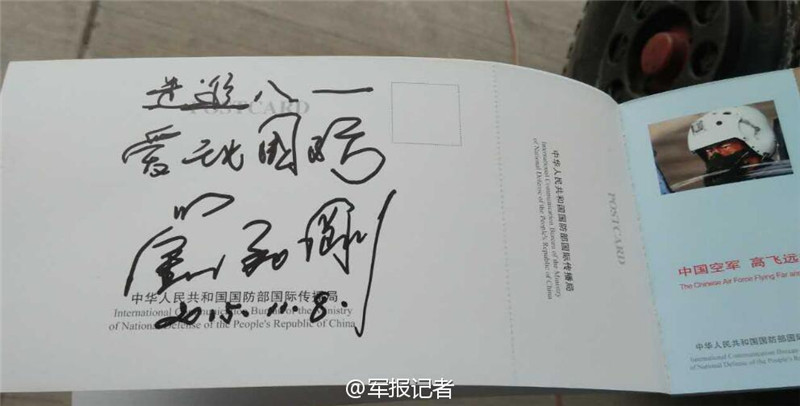 八一
POSTCARD
爱我国防
中华人民共和国国防部国际传播局
International Communication Bureau of the Ministry
of National Defense of the People's Republic of China
2015.11.8.
中华人民共和国国防部国际传播局
International Communication Bureau of the Ministry
of National Defense of the People's Republic of China
POSTCARD
中国空军 高飞远
The Chinese Air Force Flying Far and
中华人民共和国国防部国际
International Communication Bureau
of National Defense of the People's
@军报记者